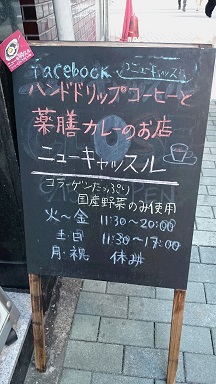 facebook ニューキャッスル
ハンドドリップコーヒーと
薬膳カレーのお店
ニューキャッスル
コラーゲンたっぷり
国産野菜のみ使用
火〜金 11:30〜20:00
土日 11:30〜17:00
月・祝 休み